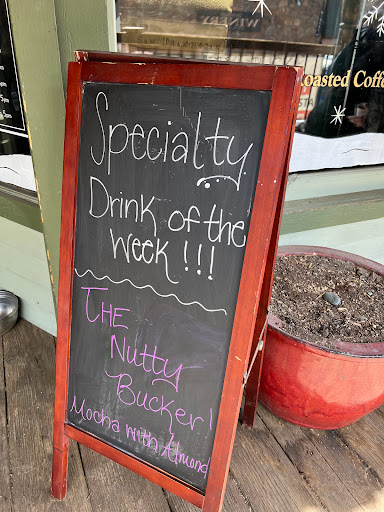 Specialty
Drink of the
Week!!!
THE
Nutty
Bucker!
Mocha with Almond
oasted Coffe